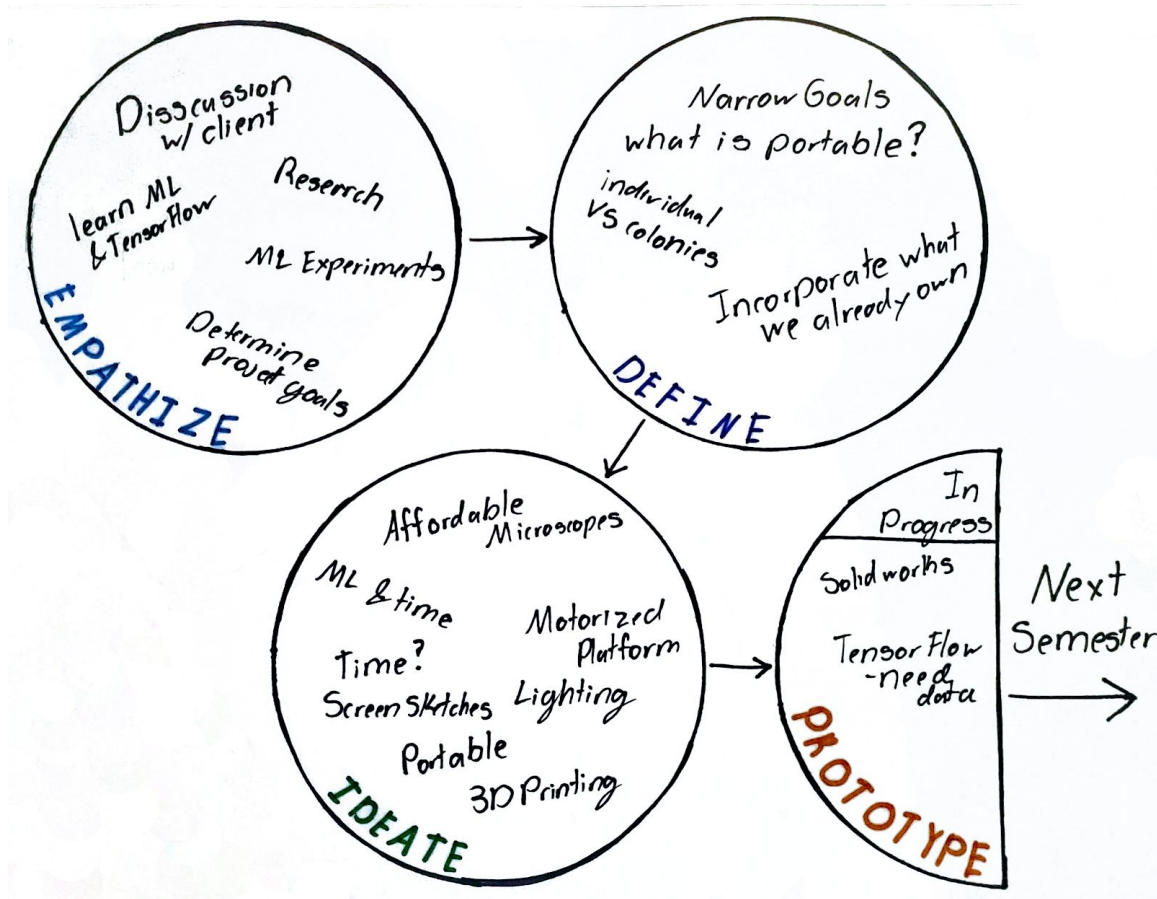 Disscussion
w/ client
Research
learn ML
& TensorFlow
ML Experiments
Determine
Projet goals
EMPATHIZE
Narrow Goals
what is portable?
individual
VS colonies
Incorporate what
we already own
DEFINE
Affordable
Microscopes
ML & time
Motorized
Platform
Time?
Screen Sketches
Lighting
Portable
3D Printing
IDEATE
In
Progress
Solidworks
TensorFlow
-need
data
PROTOTYPE
Next
Semester